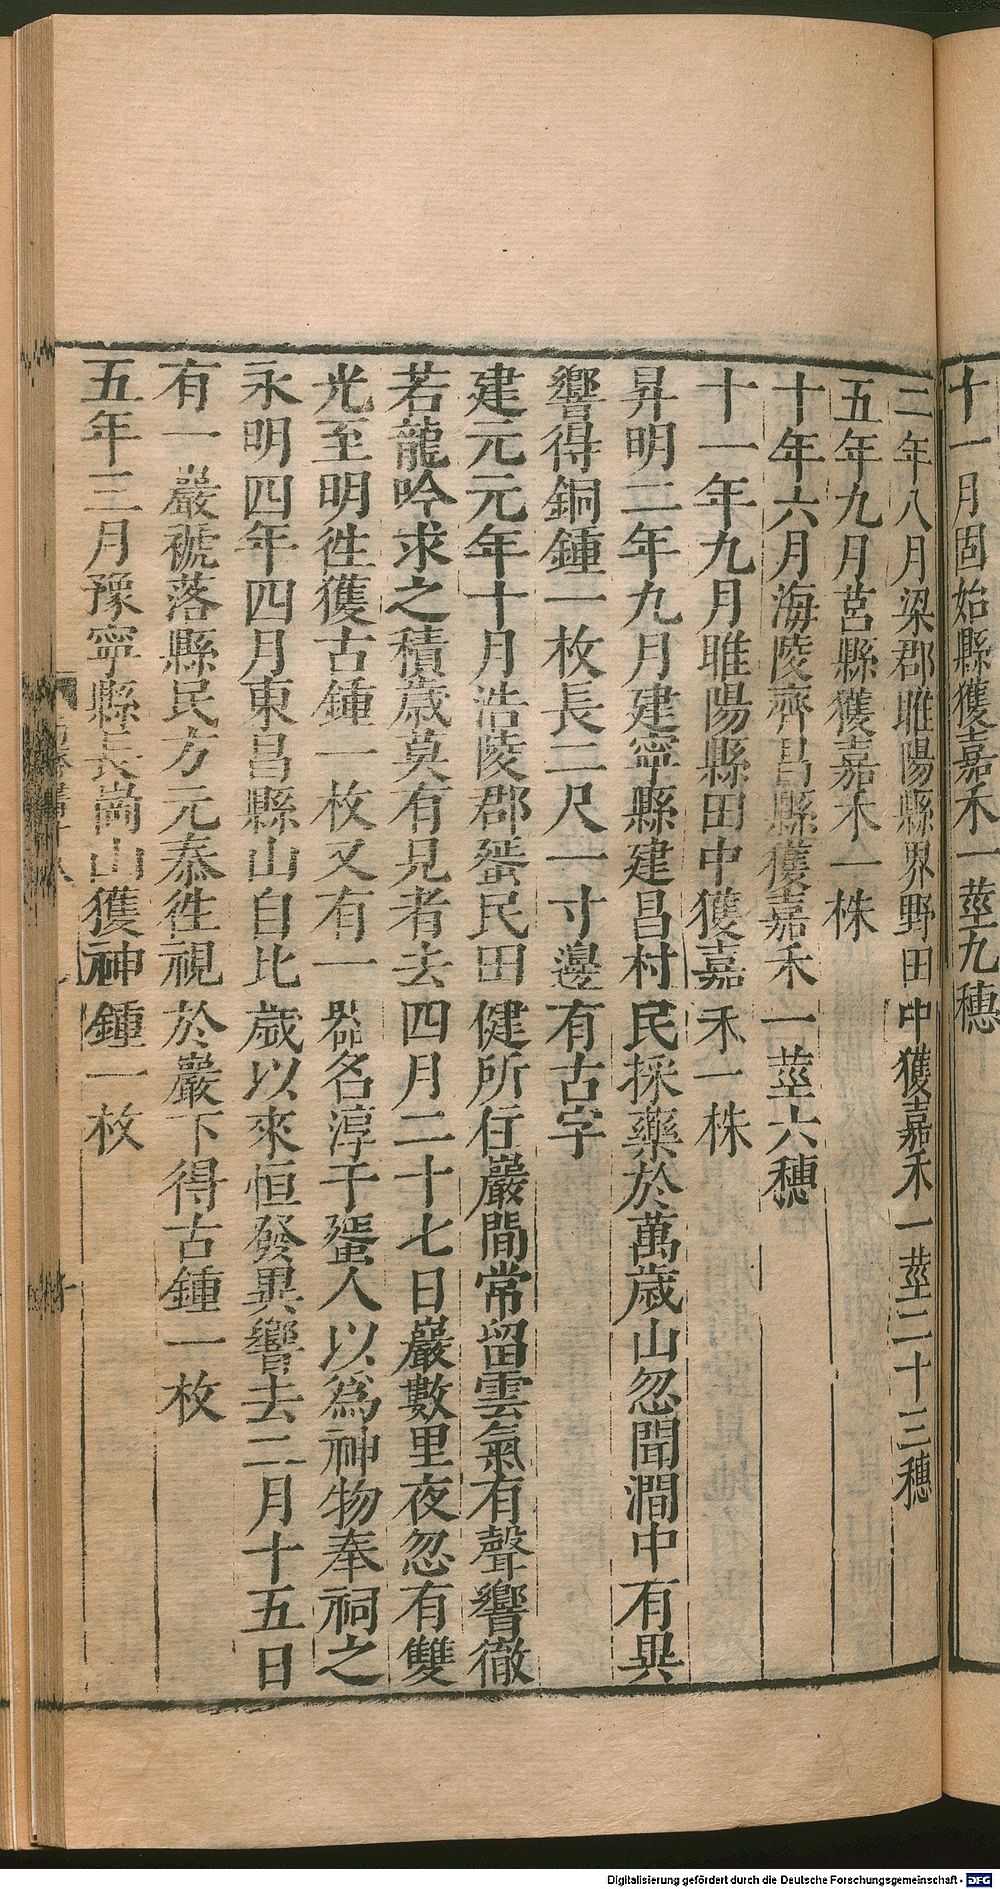 十一月固始縣獲嘉禾一莖九穗
二年八月梁郡睢陽縣界野田中獲嘉禾一莖二十三穗
五年九月莒縣獲嘉禾一株
十年六月海陵齊昌縣獲嘉禾一莖六穗
十一年九月睢陽縣田中獲嘉禾一株
昇明二年九月建寧縣建昌村民採藥於萬歲山忽聞澗中有異
響得銅鍾一枚長二尺一寸邊有古字
建元元年十月涪陵郡蜑民田健所住巖間常留雲氣有聲響徹
若龍吟求之積歲莫有見者去四月二十七日巖數里夜忽有雙
光至明徃獲古鍾一枚又有一器名淳于蜑人以爲神物奉祠之
永明四年四月東昌縣山自比歲以來恒發異響去二月十五日
有一巖褫落縣民方元泰徃視於巖下得古鍾一枚
五年三月豫寧縣長崗山獲神鍾一枚
Digitalisierung gefördert durch die Deutsche Forschungsgemeinschaft - DFG